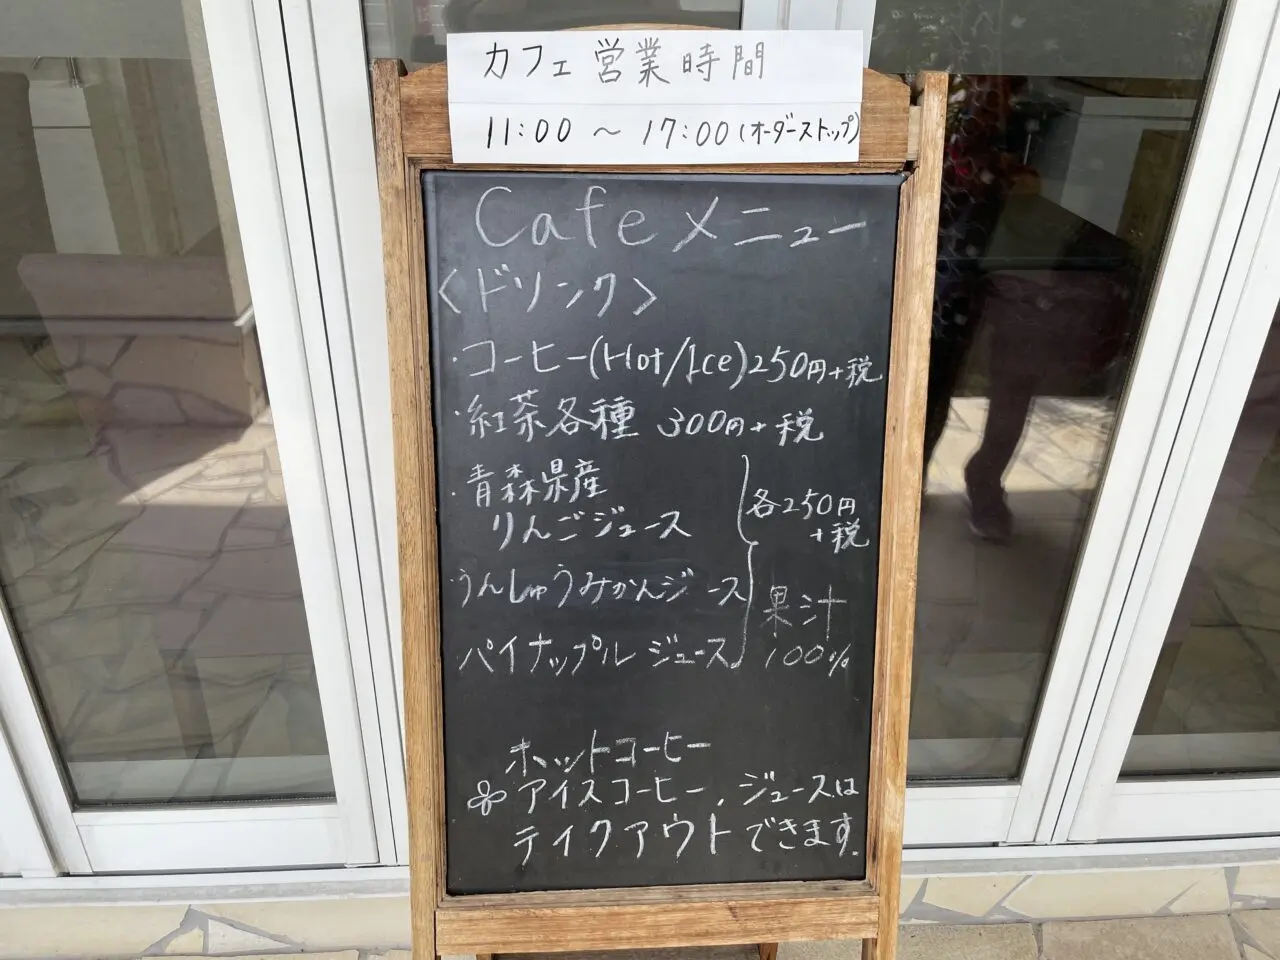 カフェ営業時間
11:00 ～ 17:00(オーダーストップ)
Cafeメニュー
〈ドリンク〉
・コーヒー(Hot/Ice)250円+税
・紅茶各種 300円+税
・青森県産
りんごジュース
各250円
+税
・うんしゅうみかんジュース
パイナップルジュース
果汁
100%
ホットコーヒー
アイスコーヒー、ジュースは
テイクアウトできます.